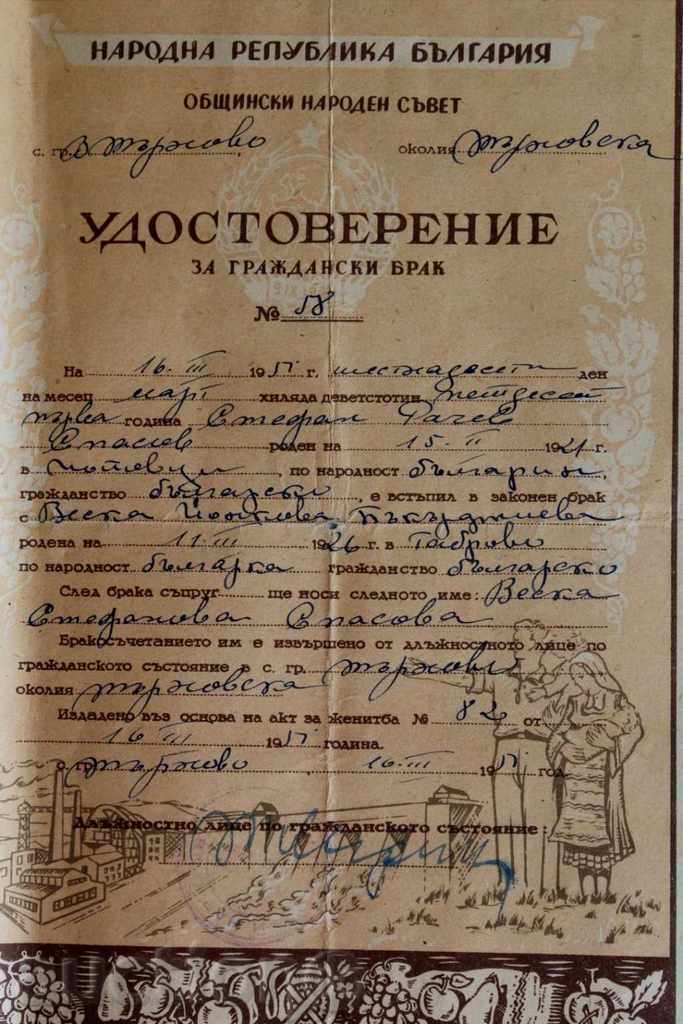 НАРОДНА РЕПУБЛИКА БЪЛГАРИЯ
ОБЩИНСКИ НАРОДЕН СЪВЕТ
с. гр. В Търново околия Търновска
УДОСТОВЕРЕНИЕ
ЗА ГРАЖДАНСКИ БРАК
№ 58
На 16. III 1951 г. шестнадесети ден
на месец март хиляда деветстотин петдесет
първа година Стефан Рачев
Спасов роден на 15. II 1921 г.
в , по народност българин,
гражданство българско, е встъпил в законен брак
с Веска Бъкърджиева
родена на 11 III 1926 г. в Габрово
по народност българка гражданство българско
След брака съпруг ще носи следното име: Веска
Стефанова Спасова
Бракосъчетанието им е извършено от длъжностното лице по
гражданското състояние в с. гр. Търново
околия Търновска
Издадено въз основа на акт за женитба № 82 от
16 III 1951 година.
с. гр. Търново, 16. III 1951 год.
Длъжностно лице по гражданското състояние: